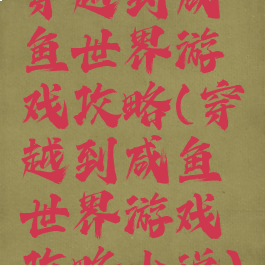 穿越到咸
鱼世界游
戏攻略(穿
越到咸鱼
世界游戏
攻略小说)